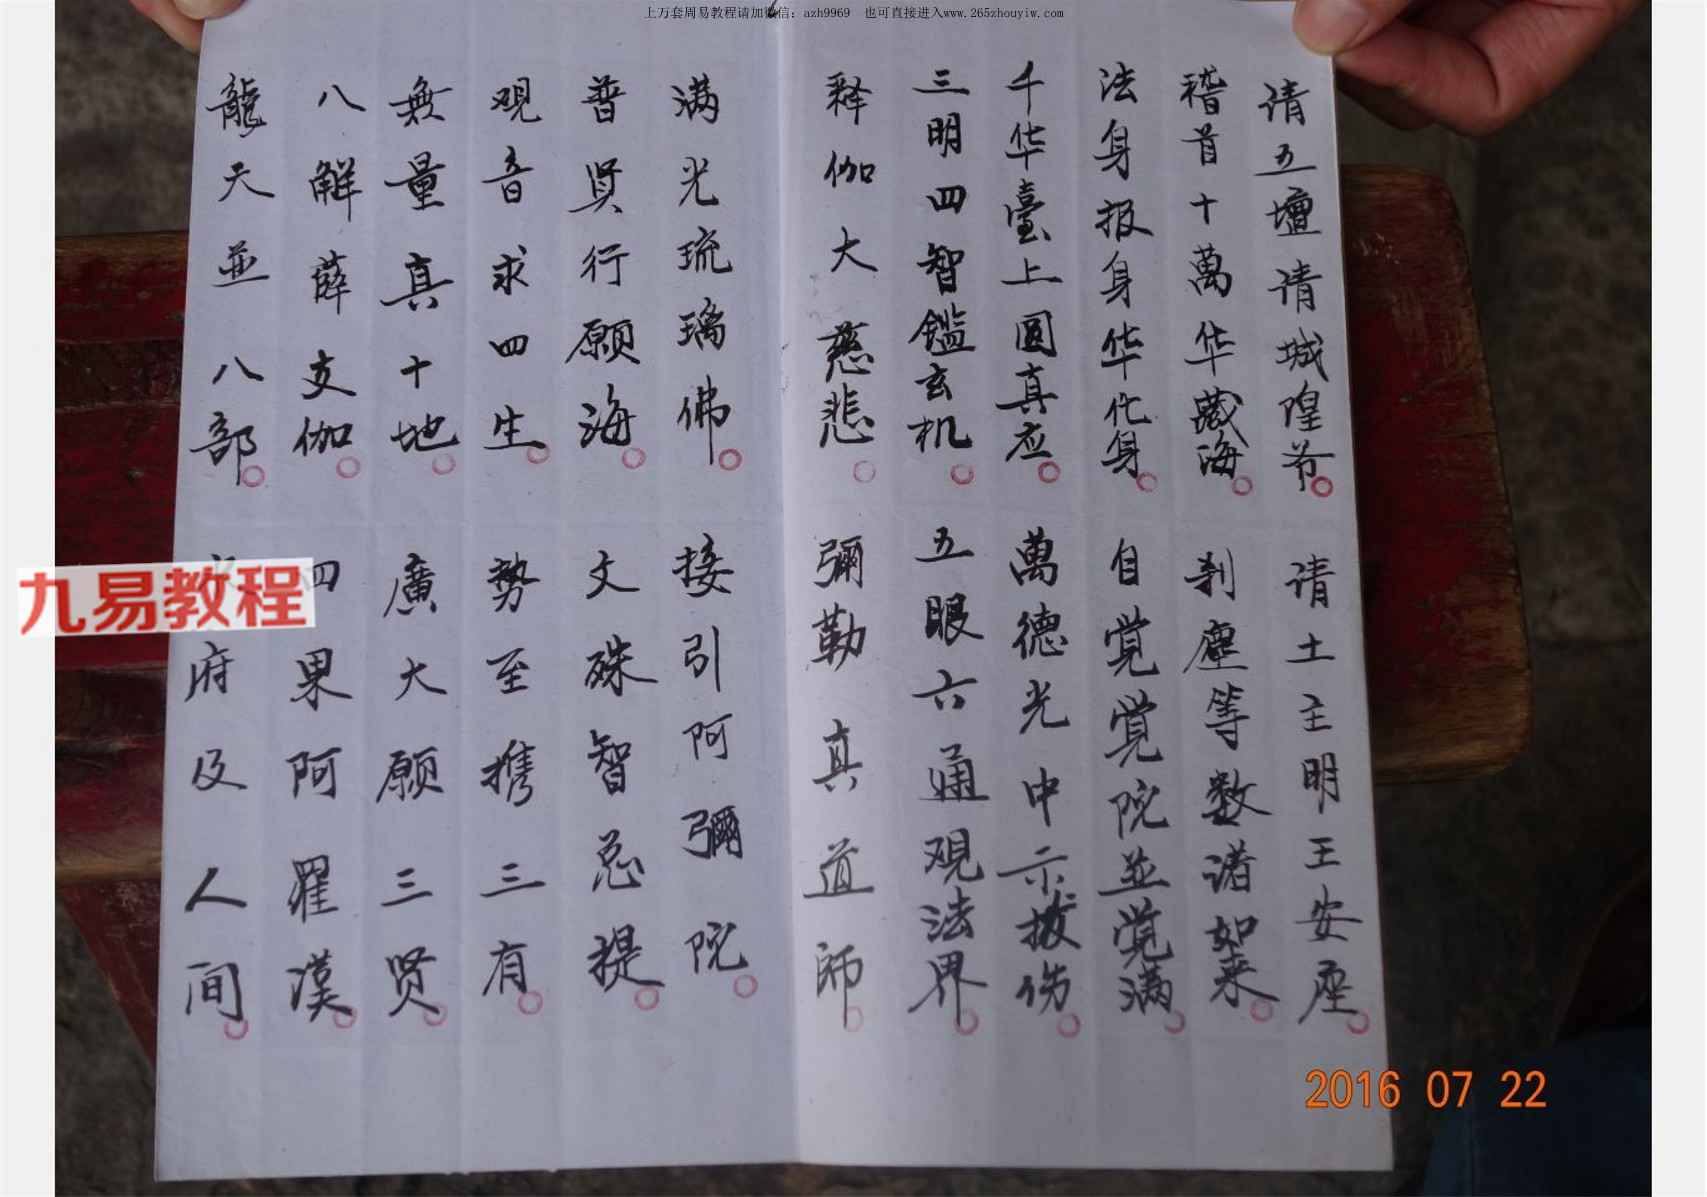 上万套周易教程请加微信：azh9969 也可直接进入www.265zhouyiw.com
请五壇请城隍爷 请土主明王安座
稽首十萬华藏海 刹塵等数诸如来
法身报身华化身 自觉觉院並觉满
千华臺上圆真应 萬德光中示拔伤
三明四智鑑玄机 五眼六通观法界
释伽大慈悲 彌勒真道師
满光琉璃佛 接引阿彌院
普贤行願海 文殊智总提
观音求四生 势至携三有
無量真十地 廣大願三贤
八解薛支伽 四果阿羅漢
龍天並八部 府及人间
九易教程
2016 07 22